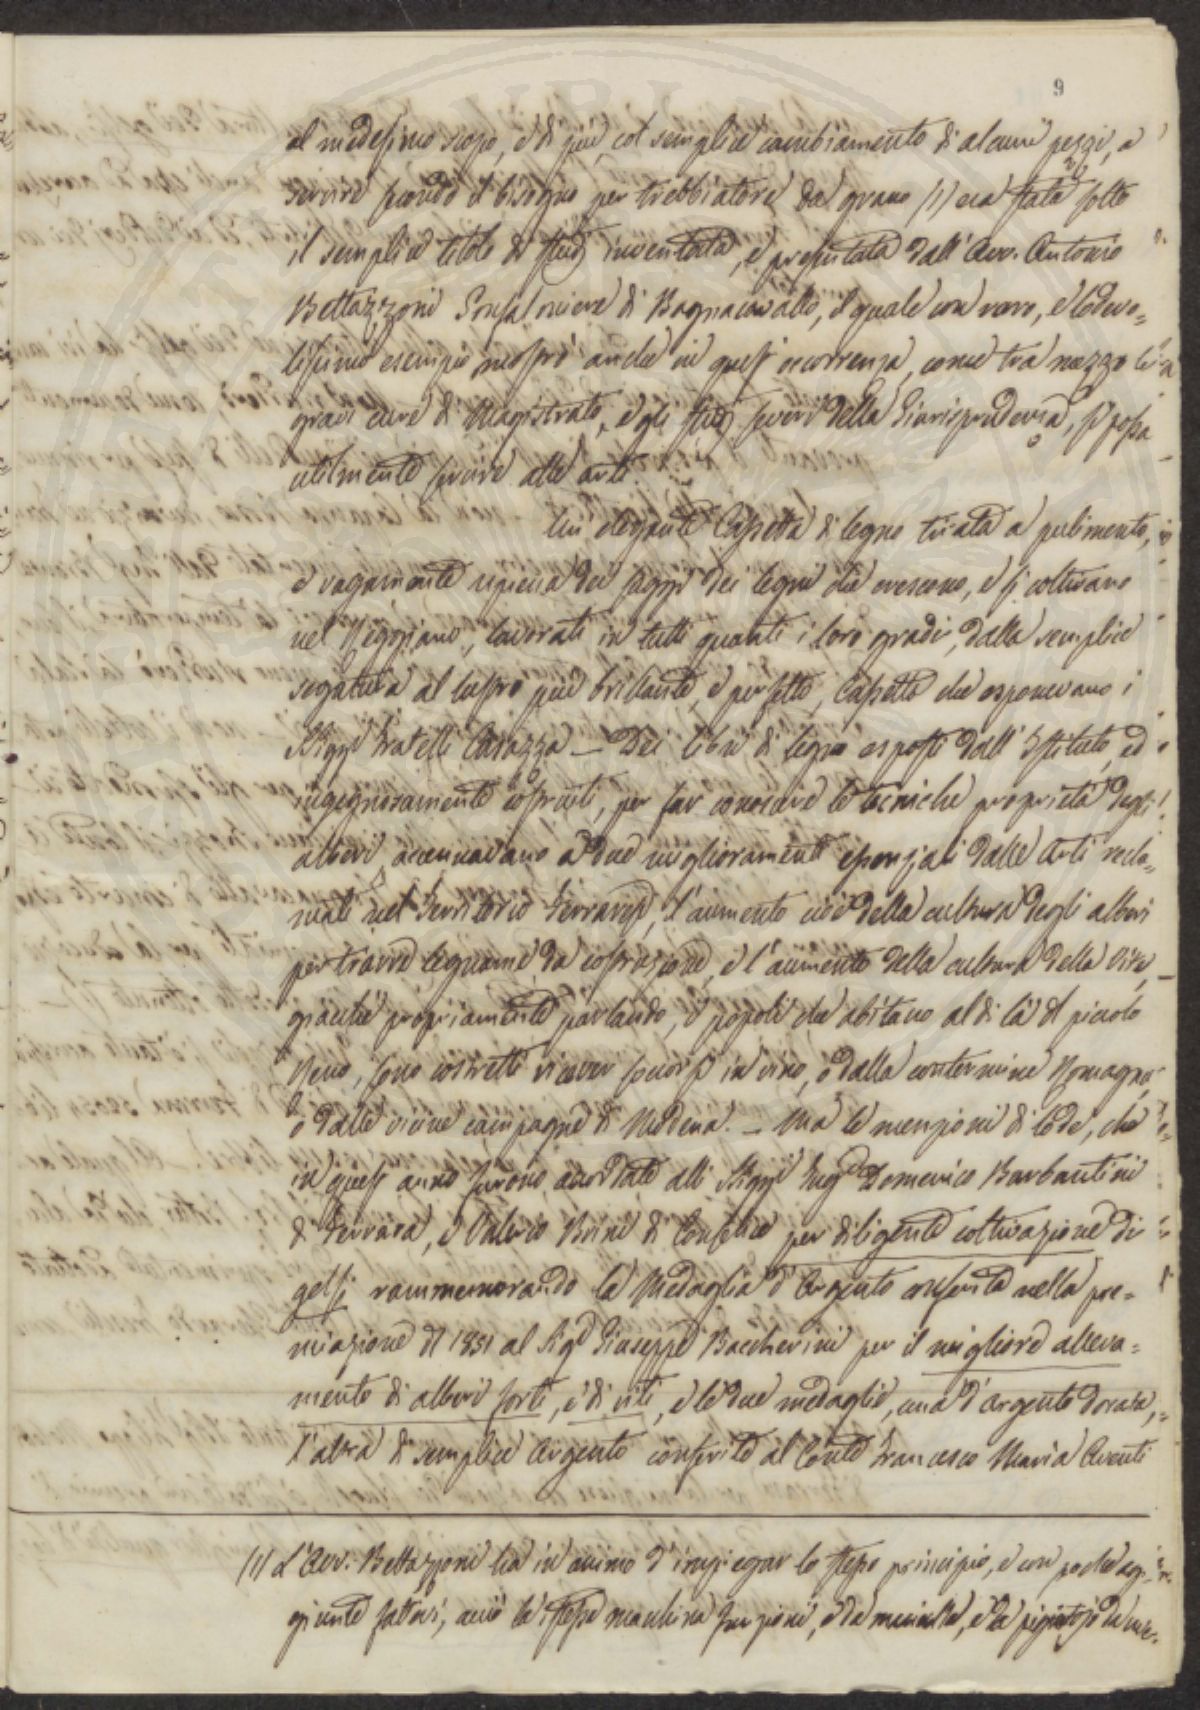 9
al medesimo scopo, e di più, col semplice cambiamento di alcuni pezzi, a
servire secondo il bisogno per trebbiatore da grano (1) era stata sotto
il semplice titolo di inventata, e presentata dall' Avv. Antonio
Bettazzoni Gonfaloniere di Bagnacavallo, il quale con raro, e lodevo=
lissimo esempio mostrò anche in quest' occorrenza, come tra mezzo le
gravi cure di Magistrato, e gli studj severi della Giurisprudenza, si possa
utilmente servire alle arti.
Un' elegante Cassetta di legno tirata a pulimento,
e vagamente ripiena dei saggi dei legni che crescono, e si coltivano
nel Reggiano, lavorati in tutti quanti i loro gradi, dalla semplice
segatura al lustro più brillante, e perfetto, Cassetta che esponevano i
Sigg.i Fratelli Casazza — Dei libri di legno esposti dall' Istituto, ed
ingegnosamente costruiti, per far conoscere le tecniche proprietà degli
alberi, accennavano a due miglioramenti dalle Arti recla=
mati nel Territorio Ferrarese, l'aumento cioè della cultura degli alberi
per trarre legname da costruzione, e l'aumento della cultura della Vite,
giacchè propriamente parlando, i popoli che abitano al di là del piccolo
Reno, sono costretti ricever soccorsi in vino, o dalla contermine Romagna
o dalle vicine campagne di Modena. — Ma le menzioni di lode, che
in quest' anno furono accordate alli Sigg.i Ing.re Domenico Barbantini
di Ferrara, e Valerio Brini di Conselice per diligente coltivazione di
gelsi rammemorando la Medaglia d'Argento conferita nella pre=
miazione del 1851 al Sig.r Giuseppe Baccherini per il migliore alleva=
mento di alberi forti, e di viti, e le due medaglie, una d'argento dorata,
l'altra di semplice Argento conferite al Conte Francesco Maria Aventi
(1) L'Avv. Bettazzoni ha in animo d'impiegar lo stesso principio, e con poche ag=
giunte fattevi, acciò la stessa macchina funzioni, e da e da